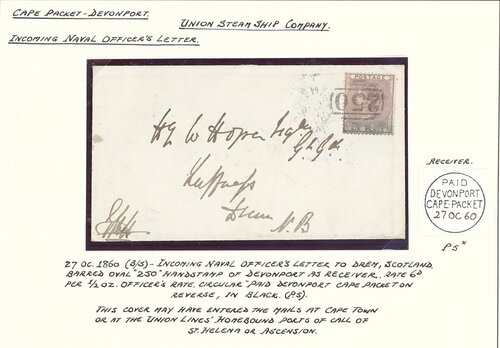 CAPE PACKET - DEVONPORT.
UNION STEAM SHIP COMPANY.
INCOMING NAVAL OFFICER'S LETTER.
POSTAGE
250
Hy W Hope Esqre
Luffness
Drem
N.B
RECEIVER.
PAID
DEVONPORT
CAPE-PACKET
27 OC 60
PS*
27 OC. 1860 (B/S) - INCOMING NAVAL OFFICER'S LETTER TO DREM, SCOTLAND.
BARRED OVAL "250" HANDSTAMP OF DEVONPORT AS RECEIVER. RATE 6D
PER 1/2 OZ. OFFICER'S RATE. CIRCULAR "PAID DEVONPORT CAPE PACKET ON
REVERSE, IN BLACK. (PS).
THIS COVER MAY HAVE ENTERED THE MAILS AT CAPE TOWN
OR AT THE UNION LINES' HOMEBOUND PORTS OF CALL OF
ST. HELENA OR ASCENSION.